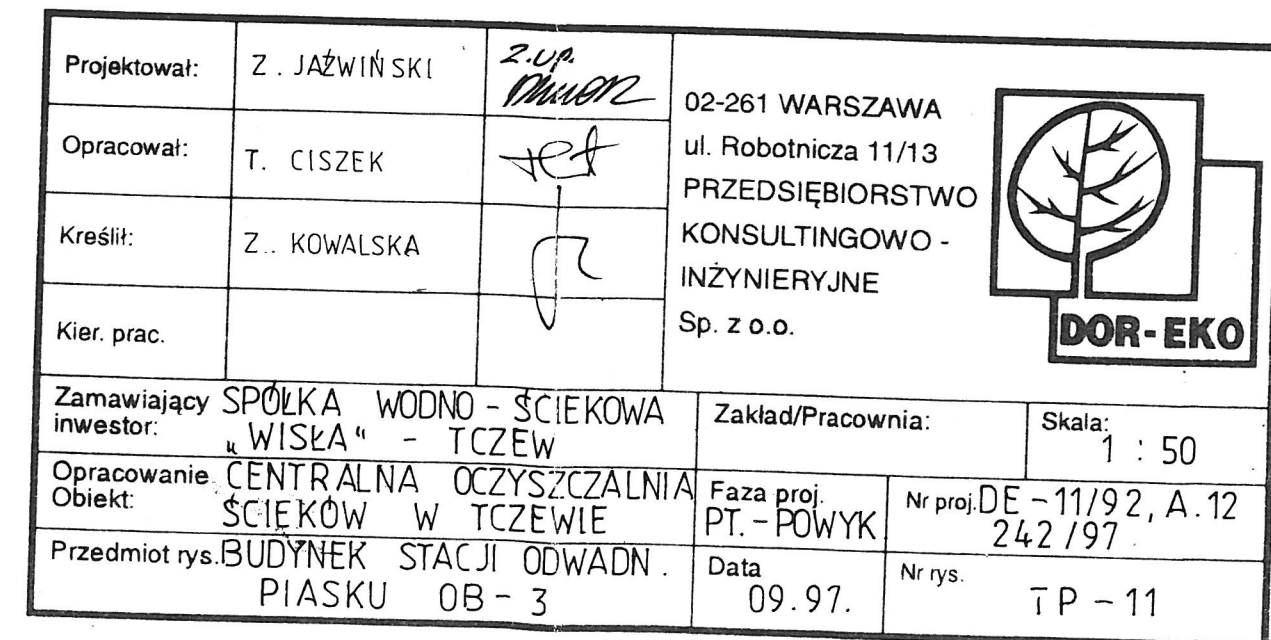 Projektował: Z. JAŹWIŃSKI z.up.
Opracował: T. CISZEK
Kreślił: Z.. KOWALSKA
Kier. prac.
02-261 WARSZAWA
ul. Robotnicza 11/13
PRZEDSIĘBIORSTWO
KONSULTINGOWO -
INŻYNIERYJNE
Sp. z o.o.
DOR-EKO
Zamawiający inwestor: SPÓŁKA WODNO - ŚCIEKOWA
„WISŁA“ - TCZEW
Zakład/Pracownia:
Skala:
1 : 50
Opracowanie Obiekt: CENTRALNA OCZYSZCZALNIA
ŚCIEKÓW W TCZEWIE
Faza proj.
PT. - POWYK
Nr proj. DE - 11/92, A.12
242/97
Przedmiot rys. BUDYNEK STACJI ODWADN.
PIASKU OB - 3
Data
09.97.
Nr rys.
TP - 11